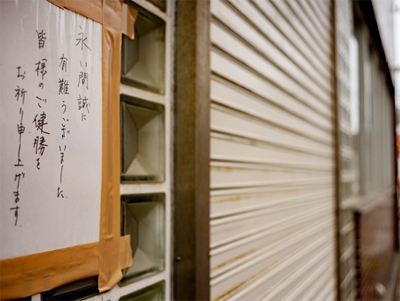 永い間誠に
有難うございました
皆様のご健勝を
お祈り申し上げます